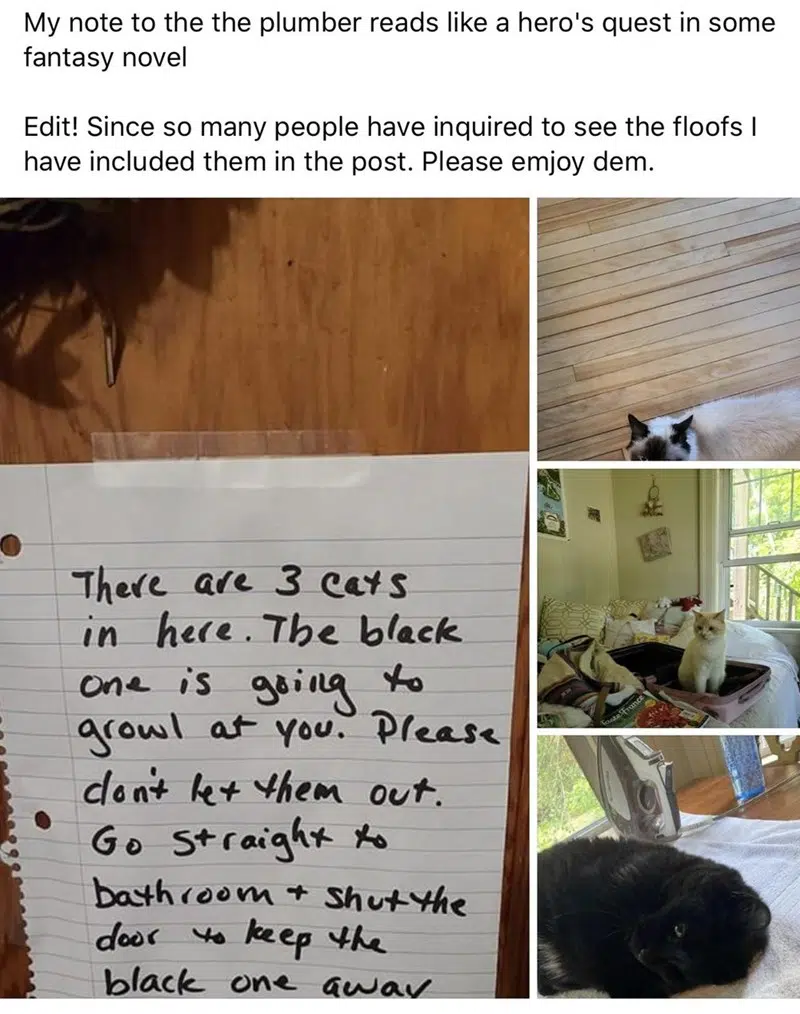 My note to the the plumber reads like a hero's quest in some
fantasy novel
Edit! Since so many people have inquired to see the floofs I
have included them in the post. Please emjoy dem.
There are 3 cats
in here. The black
one is going to
growl at you. Please
don't let them out.
Go straight to
bathroom + shut the
door to keep the
black one away